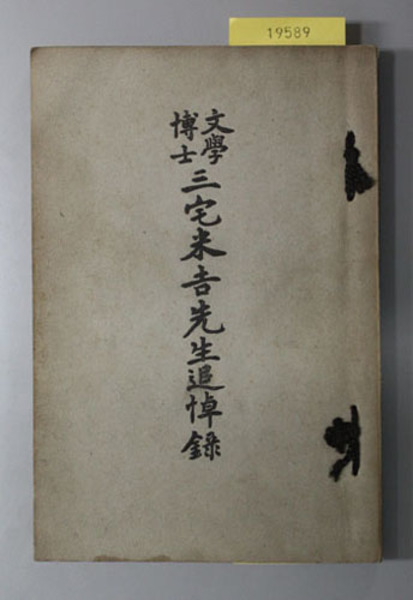 19589
文學
博士
三宅米吉先生追悼錄